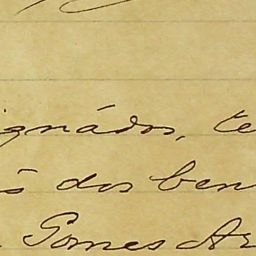 ignádos, te
s dos ben
Gomes Ar